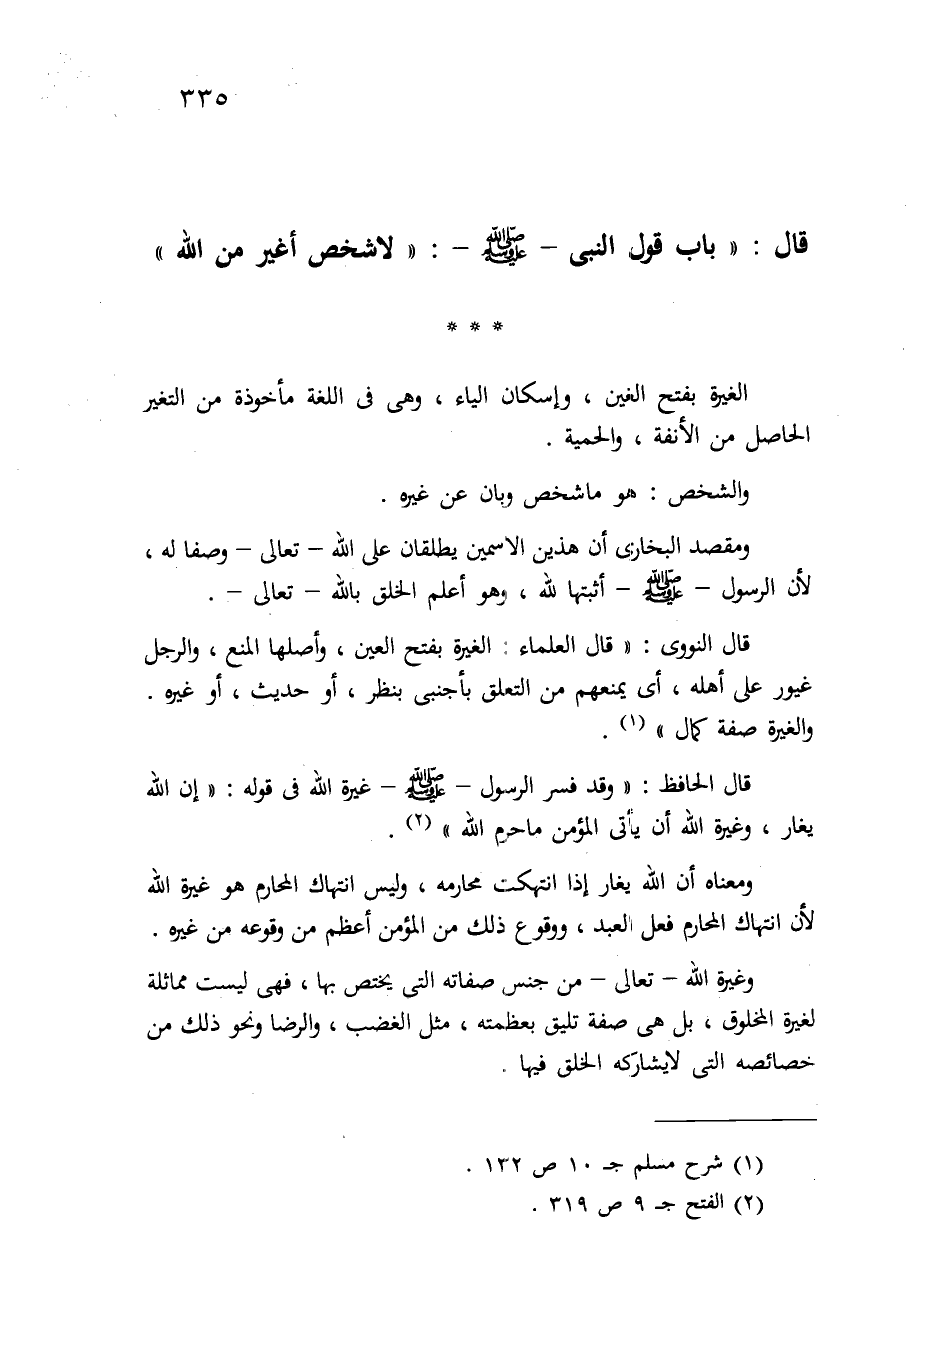 ٣٣٥
قال : « باب قول النبى – ﷺ – : « لاشخص أغير من الله »
* * *
الغيرة بفتح الغين ، وإسكان الياء ، وهى فى اللغة مأخوذة من التغير
الحاصل من الأنفة ، والحمية .
والشخص : هو ماشخص وبان عن غيره .
ومقصد البخارى أن هذين الاسمين يطلقان على الله – تعالى – وصفا له ،
لأن الرسول – ﷺ – أثبتها لله ، وهو أعلم الخلق بالله – تعالى – .
قال النووى : « قال العلماء : الغيرة بفتح العين ، وأصلها المنع ، والرجل
غيور على أهله ، أى يمنعهم من التعلق بأجنبى بنظر ، أو حديث ، أو غيره .
والغيرة صفة كمال » (١) .
قال الحافظ : « وقد فسر الرسول – ﷺ – غيرة الله فى قوله : « إن الله
يغار ، وغيرة الله أن يأتى المؤمن ماحرم الله » (٢) .
ومعناه أن الله يغار إذا انتهكت محارمه ، وليس انتهاك المحارم هو غيرة الله
لأن انتهاك المحارم فعل العبد ، ووقوع ذلك من المؤمن أعظم من وقوعه من غيره .
وغيرة الله – تعالى – من جنس صفاته التى يختص بها ، فهى ليست مماثلة
لغيرة المخلوق ، بل هى صفة تليق بعظمته ، مثل الغضب ، والرضا ونحو ذلك من
خصائصه التى لايشاركه الخلق فيها .
(١) شرح مسلم جـ ١٠ ص ١٣٢ .
(٢) الفتح جـ ٩ ص ٣١٩ .